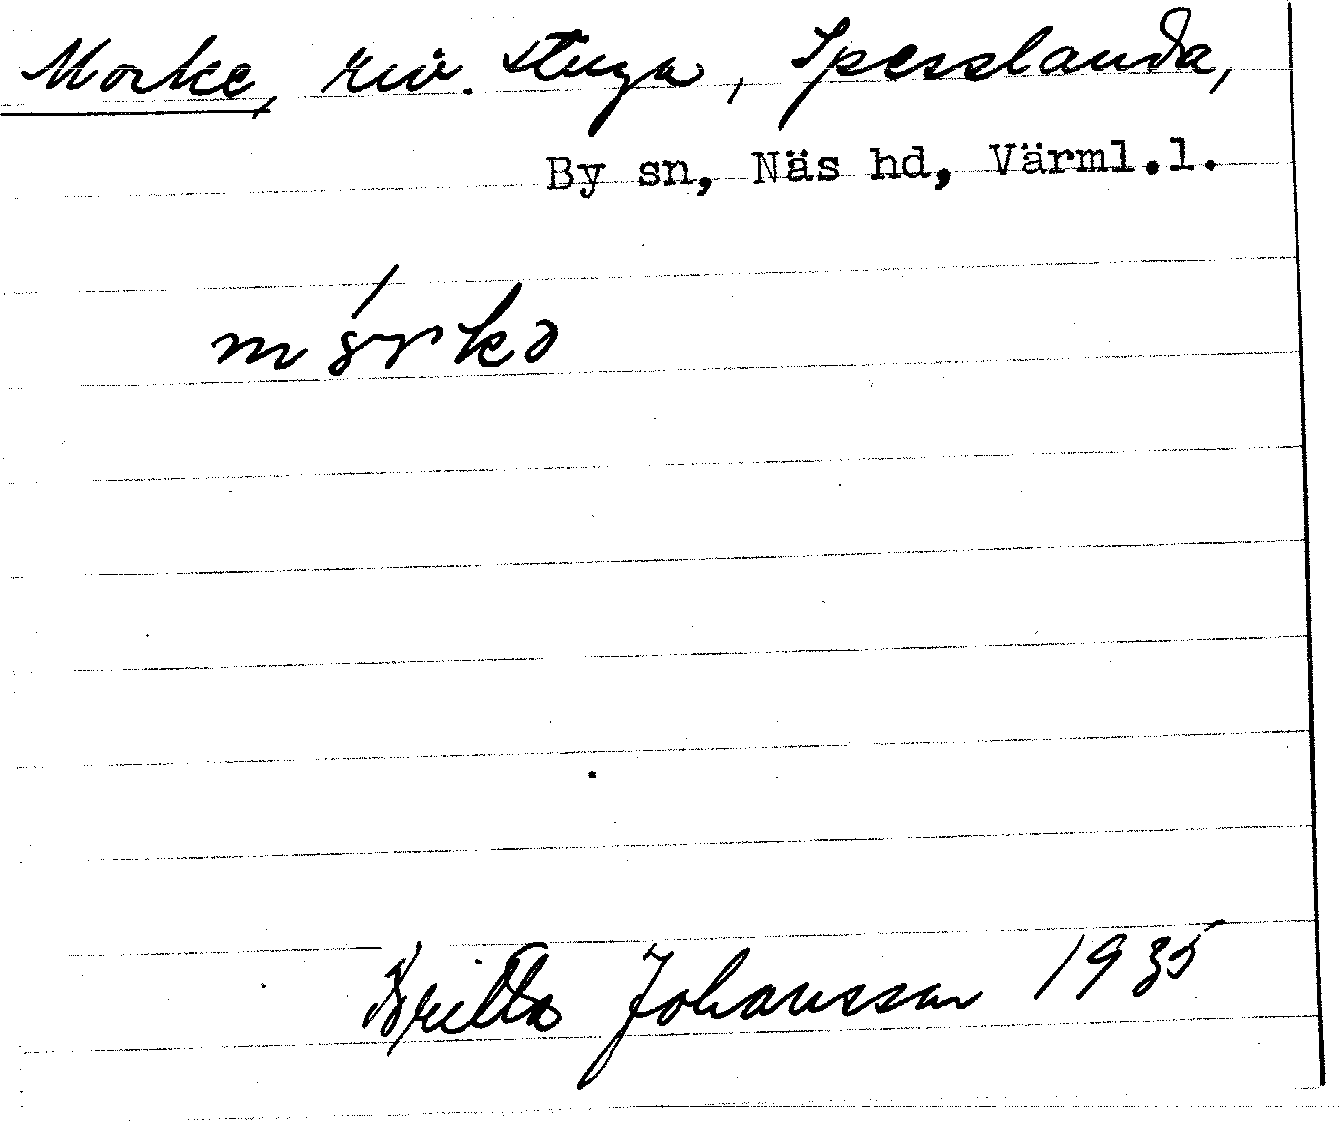 Morke, riv. stuga, Spesslanda,
By sn, Näs hd, Värml.l.
Britta Johansson 1935